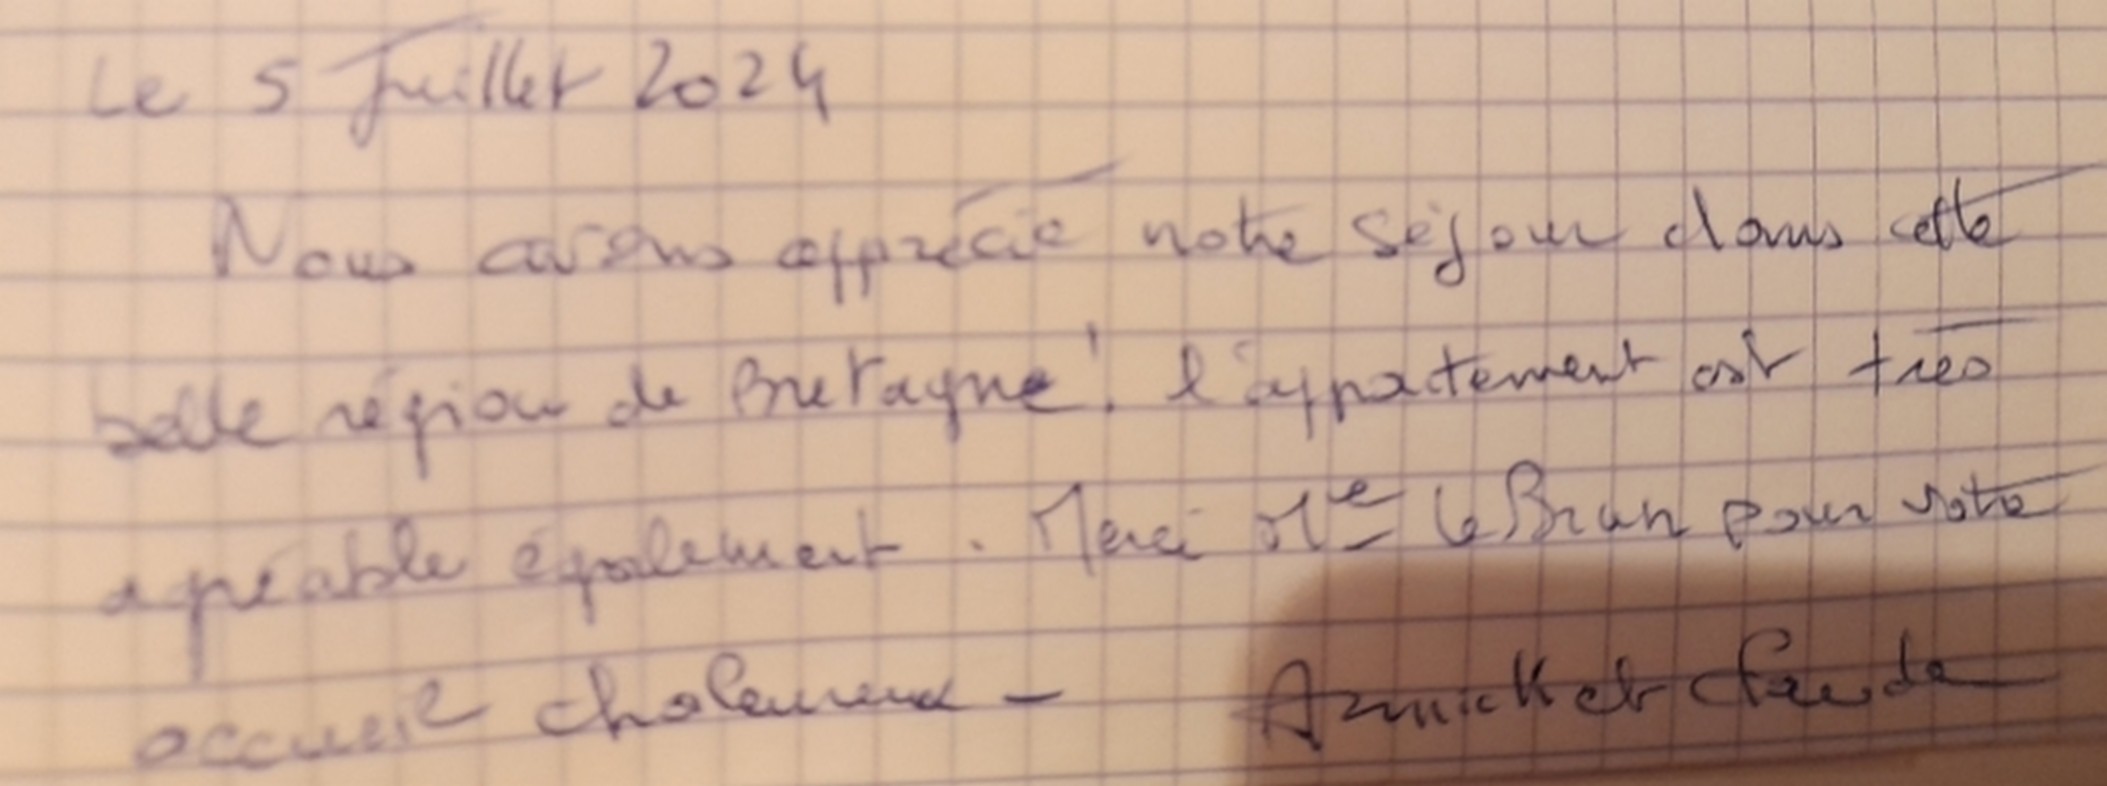 Le 5 Juillet 2024
Nous avons apprécié notre séjour dans cette
belle région de Bretagne ! l'appartement est très
agréable également. Merci Me Le Brun pour votre
accueil chaleureux - Annick et Claude